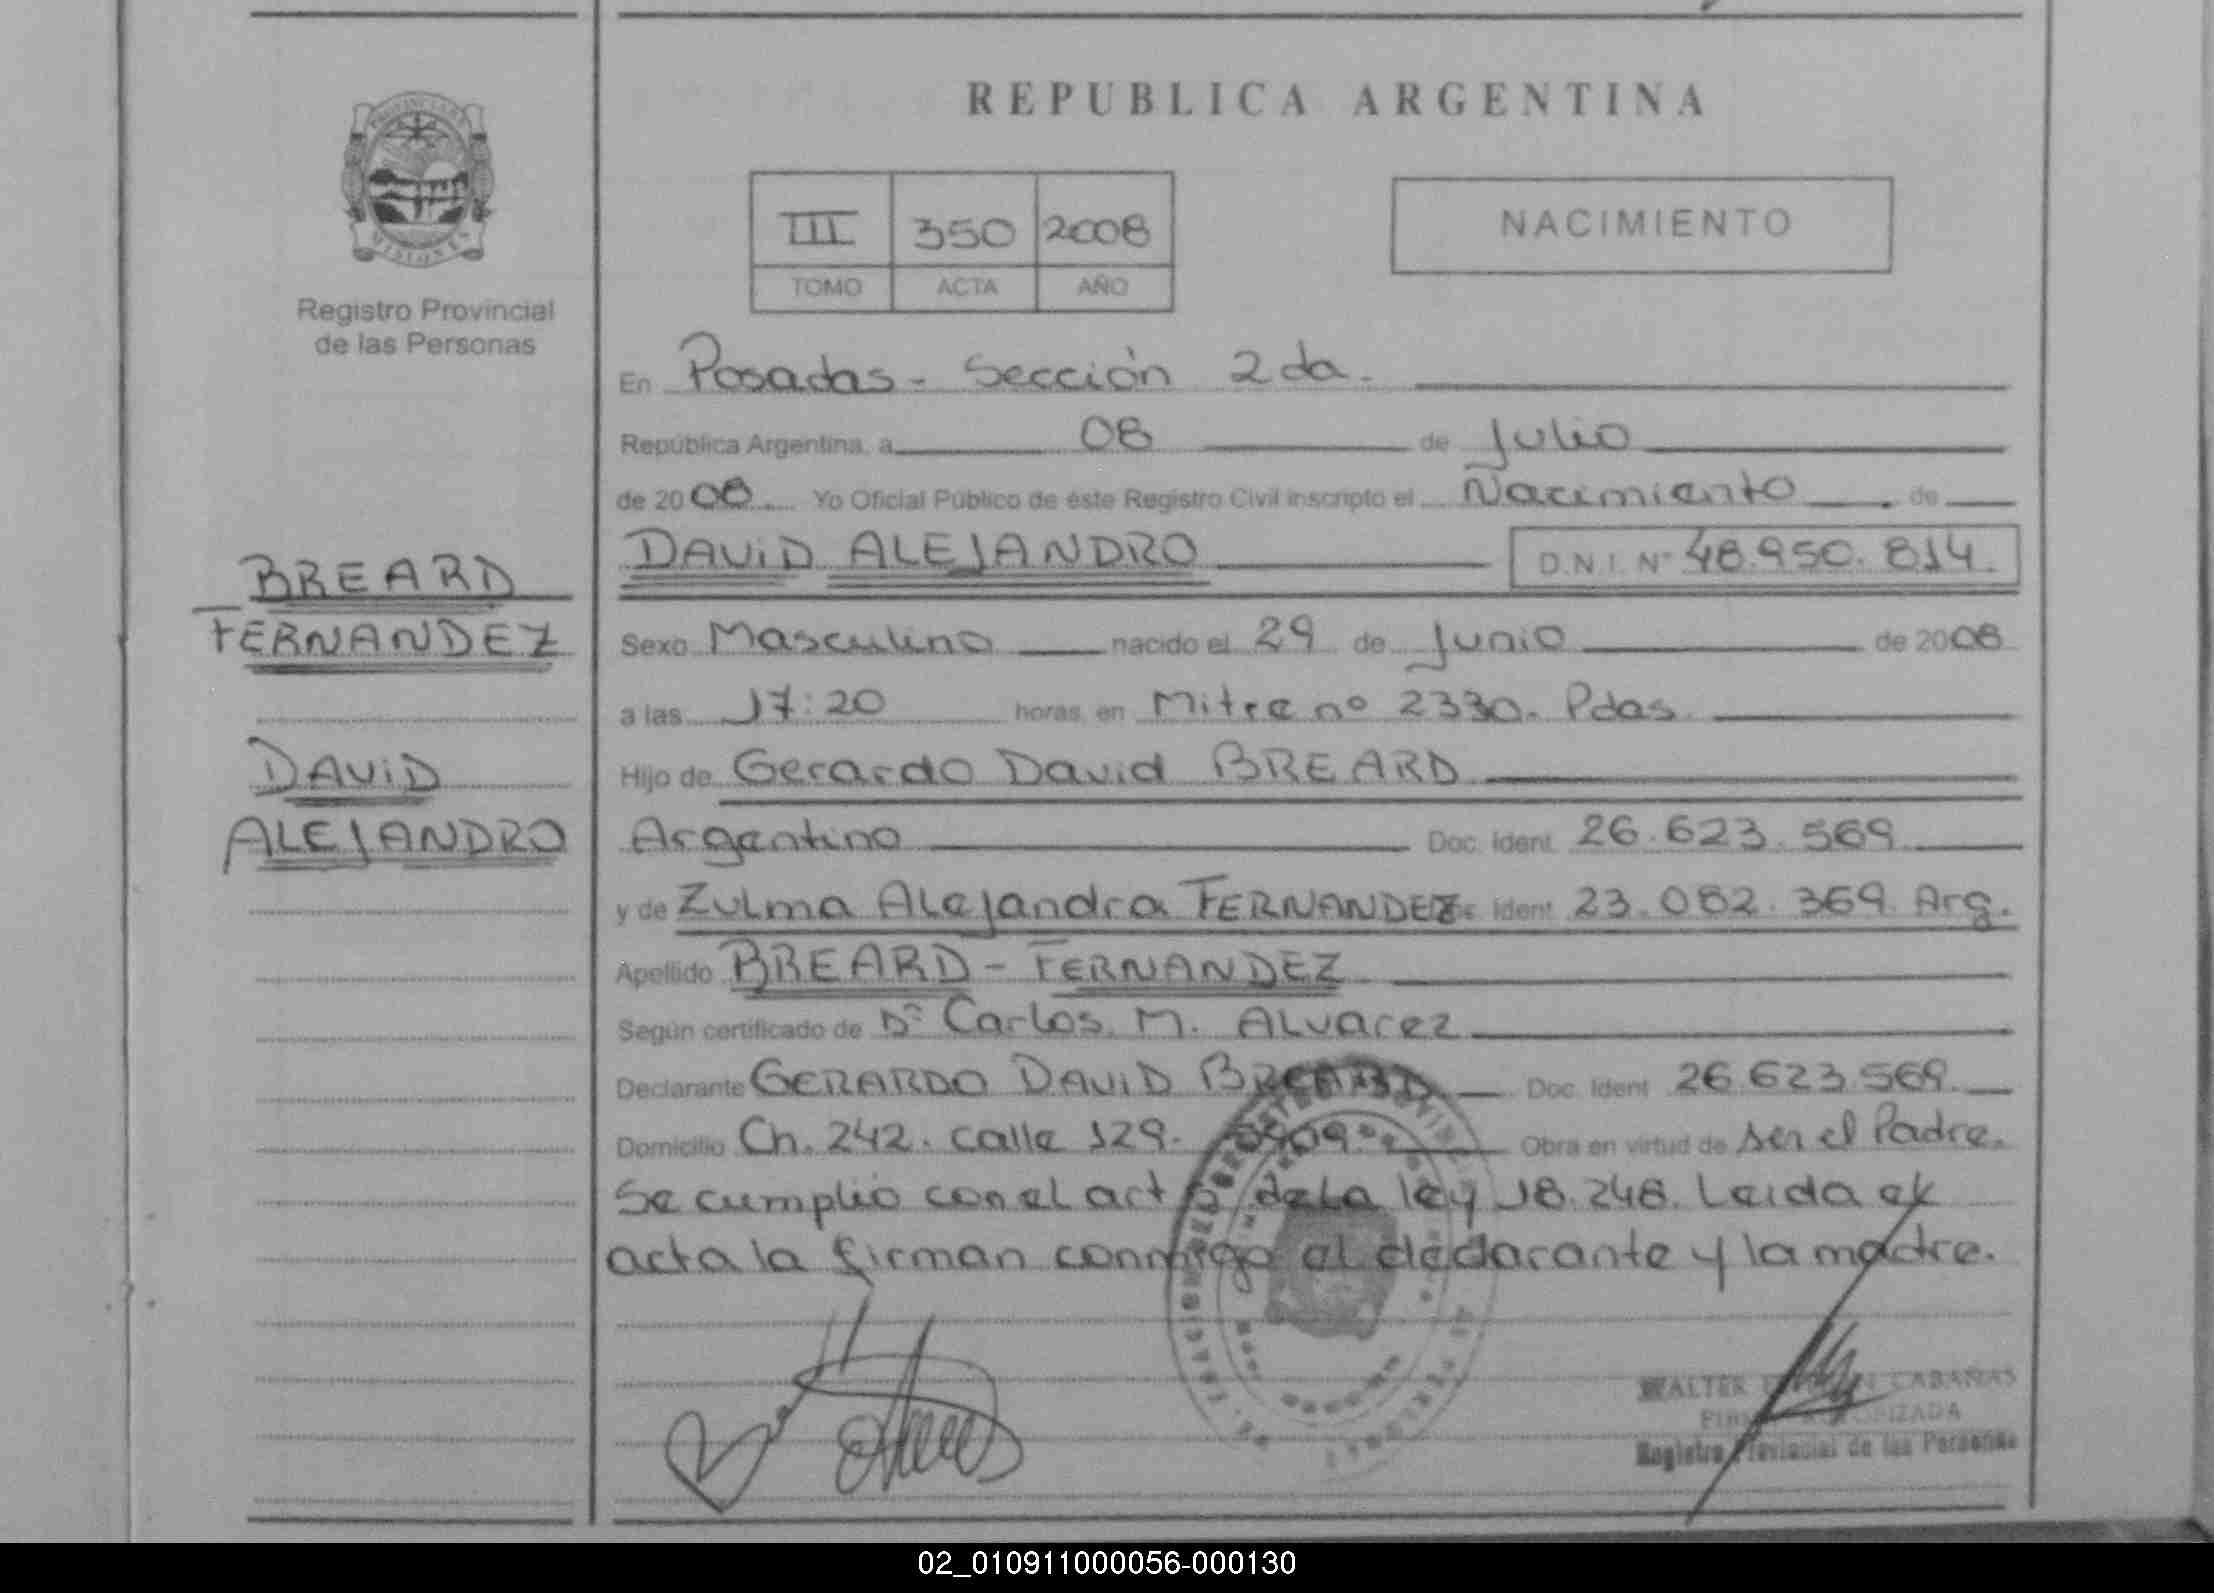 REPUBLICA ARGENTINA
PROVINCIA DE
MISIONES
Registro Provincial
de las Personas
III 350 2008
TOMO ACTA AÑO
NACIMIENTO
En Posadas - Sección 2da.
República Argentina, a 08 de Julio
de 2008 Yo Oficial Público de éste Registro Civil inscripto el Nacimiento de
DAViD ALEJANDRO D.N.I. Nº 48.950.814.
BREARD
FERNANDEZ
DAViD
ALEJANDRO
Sexo Masculino nacido el 29 de Junio de 2008
a las 17:20 horas, en Mitre nº 2330. Pdas.
Hijo de Gerardo David BREARD
Argentino Doc. Ident. 26.623.569
y de Zulma Alejandra FERNANDEZ ident. 23.082.369. Arg.
Apellido BREARD - FERNANDEZ
Según certificado de Dr Carlos M. Alvarez
Declarante GERARDO DAViD BREARD Doc. Ident. 26.623.569.
Domicilio Ch. 242. calle 129. Obra en virtud de ser el Padre.
Se cumplio con el art de la ley 18.248. Leida el
acta la firman conmigo el declarante y la madre.
WALTER CABAÑAS
FIRMA AUTORIZADA
Registro Provincial de las Personas
02_010911000056-000130